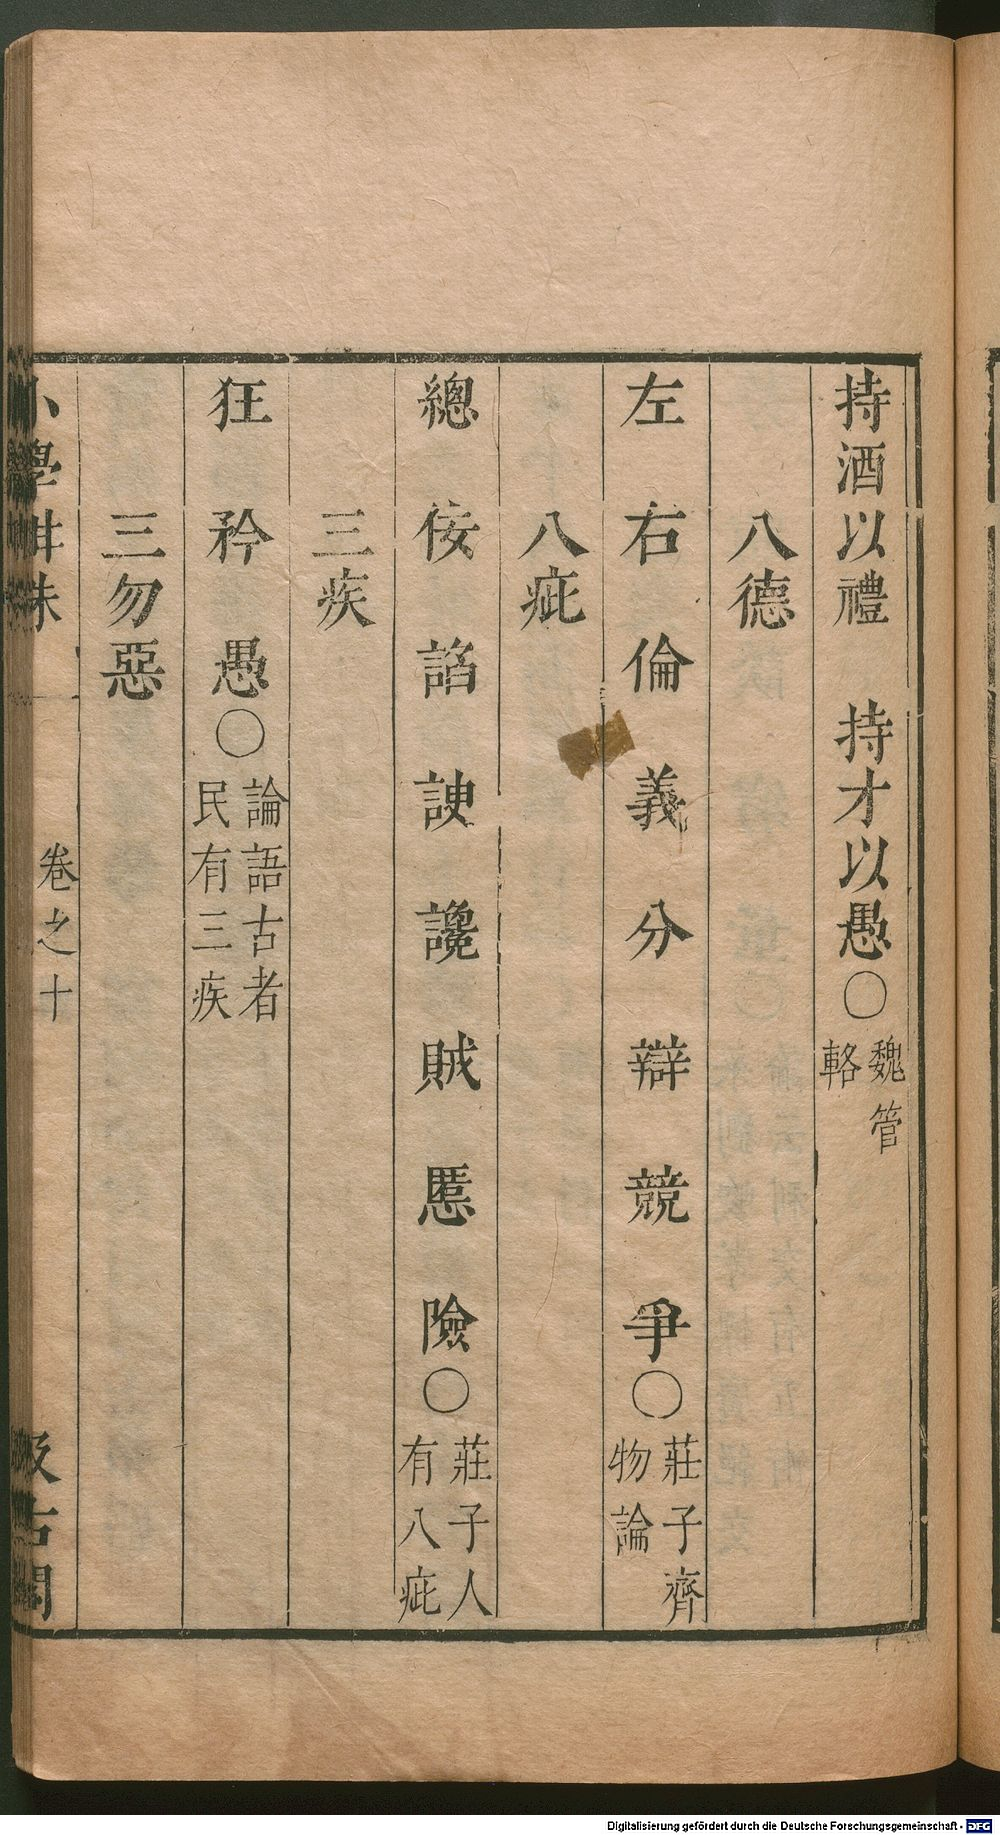 持酒以禮　持才以愚○魏管輅
八德
左右倫義分辯競爭○莊子齊物論
八疵
總佞諂諛讒賊慝險○莊子人有八疵
三疾
狂矜愚○論語古者民有三疾
三勿惡
小學紺珠　卷之十　汲古閣
Digitalisierung gefördert durch die Deutsche Forschungsgemeinschaft - DFG